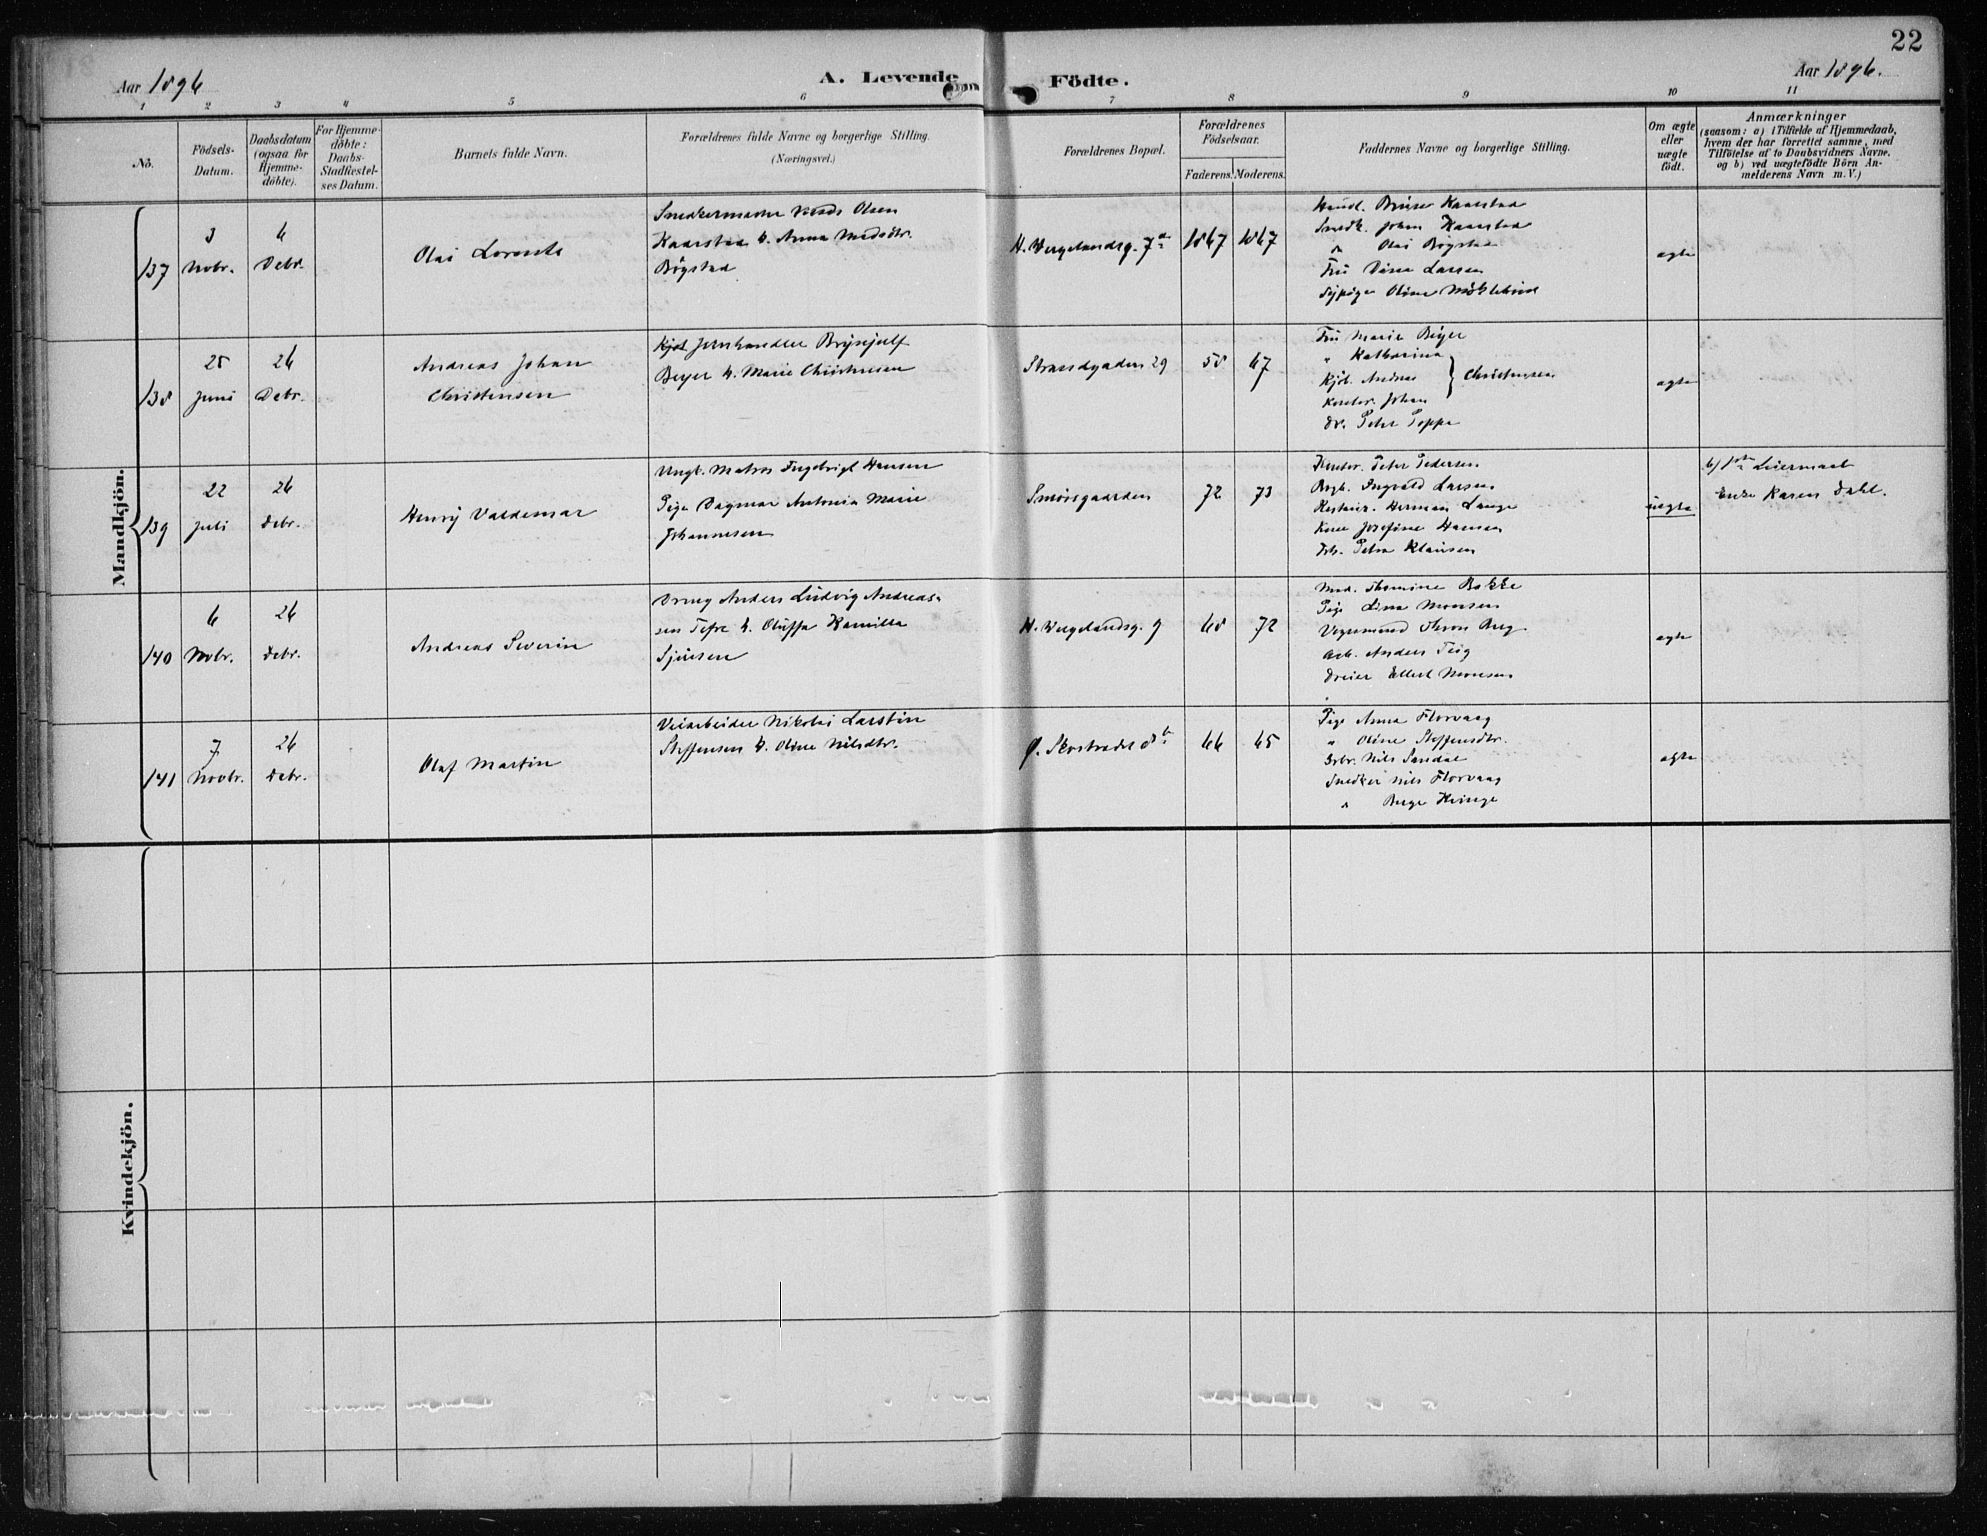 22
Aar 1896
A. Levende Födte.
Aar 1896.
1 2 3 4 5 6 7 8 9 10 11
No.
Födsels-Datum.
Daabsdatum (ogsaa for Hjemme-döbte).
For Hjemme-döbte: Daabs-Stadfæstel-ses Datum.
Barnets fulde Navn.
Forældrenes fulde Navne og borgerlige Stilling.
(Næringsvei.)
Forældrenes Bopæl.
Forældrenes Födselsaar.
Faderens. Moderens.
Faddernes Navne og borgerlige Stilling.
Om ægte eller uægte födt.
Anmærkninger
(saasom: a) i Tilfælde af Hjemmedaab,
hvem der har forrettet samme, med
Tilföielse af to Daabsvidners Navne,
og b) ved uægtefödte Börn An-
melderens Navn m. V.)
Mandkjön.
137
3 Novbr.
6 Debr.
Olai Lorents
Snedkermester Olsen
Kaarstad & Anna Madsdtr.
Bögstad
H. Wergelandsg. 7a
1867 1867
Handl. Kaarstad
Snedk. Johan Kaarstad
" Olai Bögstad
Fru Larsen
Sypige Oline
ægte
138
25 Juni
26 Debr.
Andreas Johan
Christensen
Jernhandler Brynjulf
Beyer & Marie Christensen
Strandgaden 29
58 67
Fru Marie Beyer
" Katharina
Kjöb. Andreas } Christensen
Kontor. Johan
Dr. Peter Poppe
ægte
139
22 Juli
26 Debr.
Henry Valdemar
Ungk. Matros Ingebrigt Hansen
Pige Dagmar Antonia Marie
Johannesen
Smörsgaarden
72 73
Kontor. Peter Pedersen
Ingvald Larsen
Herman Lange
Kone Josefine Hansen
Petra Klausen
uægte
b) Leiermaal
Enke Karen Dahl.
140
6 Novbr.
26 Debr.
Andreas Severin
Anders Ludvig Andreas-
sen & Oluffa Kamilla
Sjursen
H. Wergelandsg. 9
68 72
Mad. Thomine Bakke
Pige Lina Monsen
Berg
Arb. Anders Teig
Dreier Ellert Monsen
ægte
141
7 Novbr.
26 Debr.
Olaf Martin
Veiarbeider Nikolai Larstin
Steffensen & Oline Nilsdtr.
Ø. Skostrædet 8b
66 65
Pige Anna Florvaag
" Oline Steffensdtr.
Nils Sandal
Snedker Nils Florvaag
" Berge Hvinge
ægte
Kvindekjön.